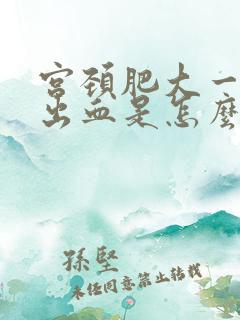 宫颈肥大一
出血是怎麽
孫堅
未经同意禁止转载